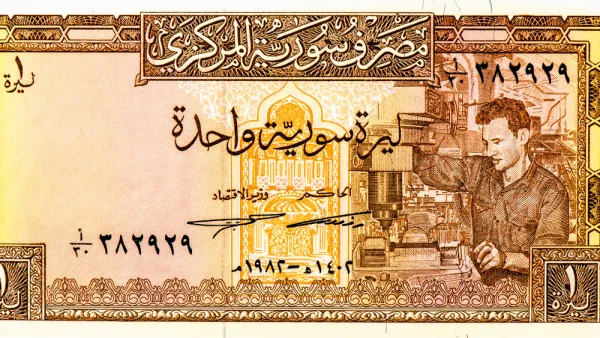 مصرف سورية المركزي
١ ليرة
أ/٣٠ ٣٨٢٩٢٩
ليرة سورية واحدة
الحاكم وزير الاقتصاد
أ/٣٠ ٣٨٢٩٢٩
١٤٠٢ھ - ١٩٨٢م
١ ليرة
١ ليرة